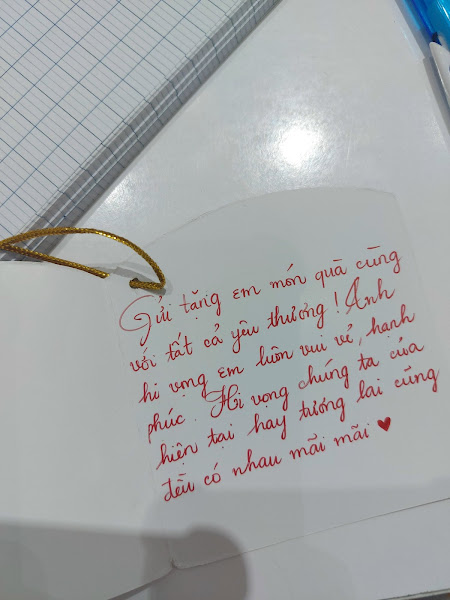 Gửi tặng em món quà cùng
với tất cả yêu thương! Anh
hi vọng em luôn vui vẻ, hạnh
phúc. Hi vọng chúng ta của
hiện tại hay tương lai cũng
đều có nhau mãi mãi ♥